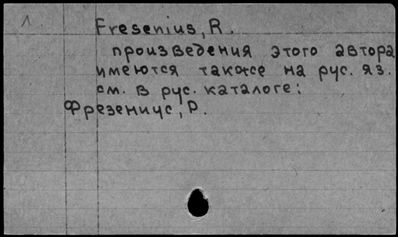 1
Fresenius, R.
произведения этого автора
имеются также на рус. яз.
см. в рус. каталоге:
Фрезениус, Р.